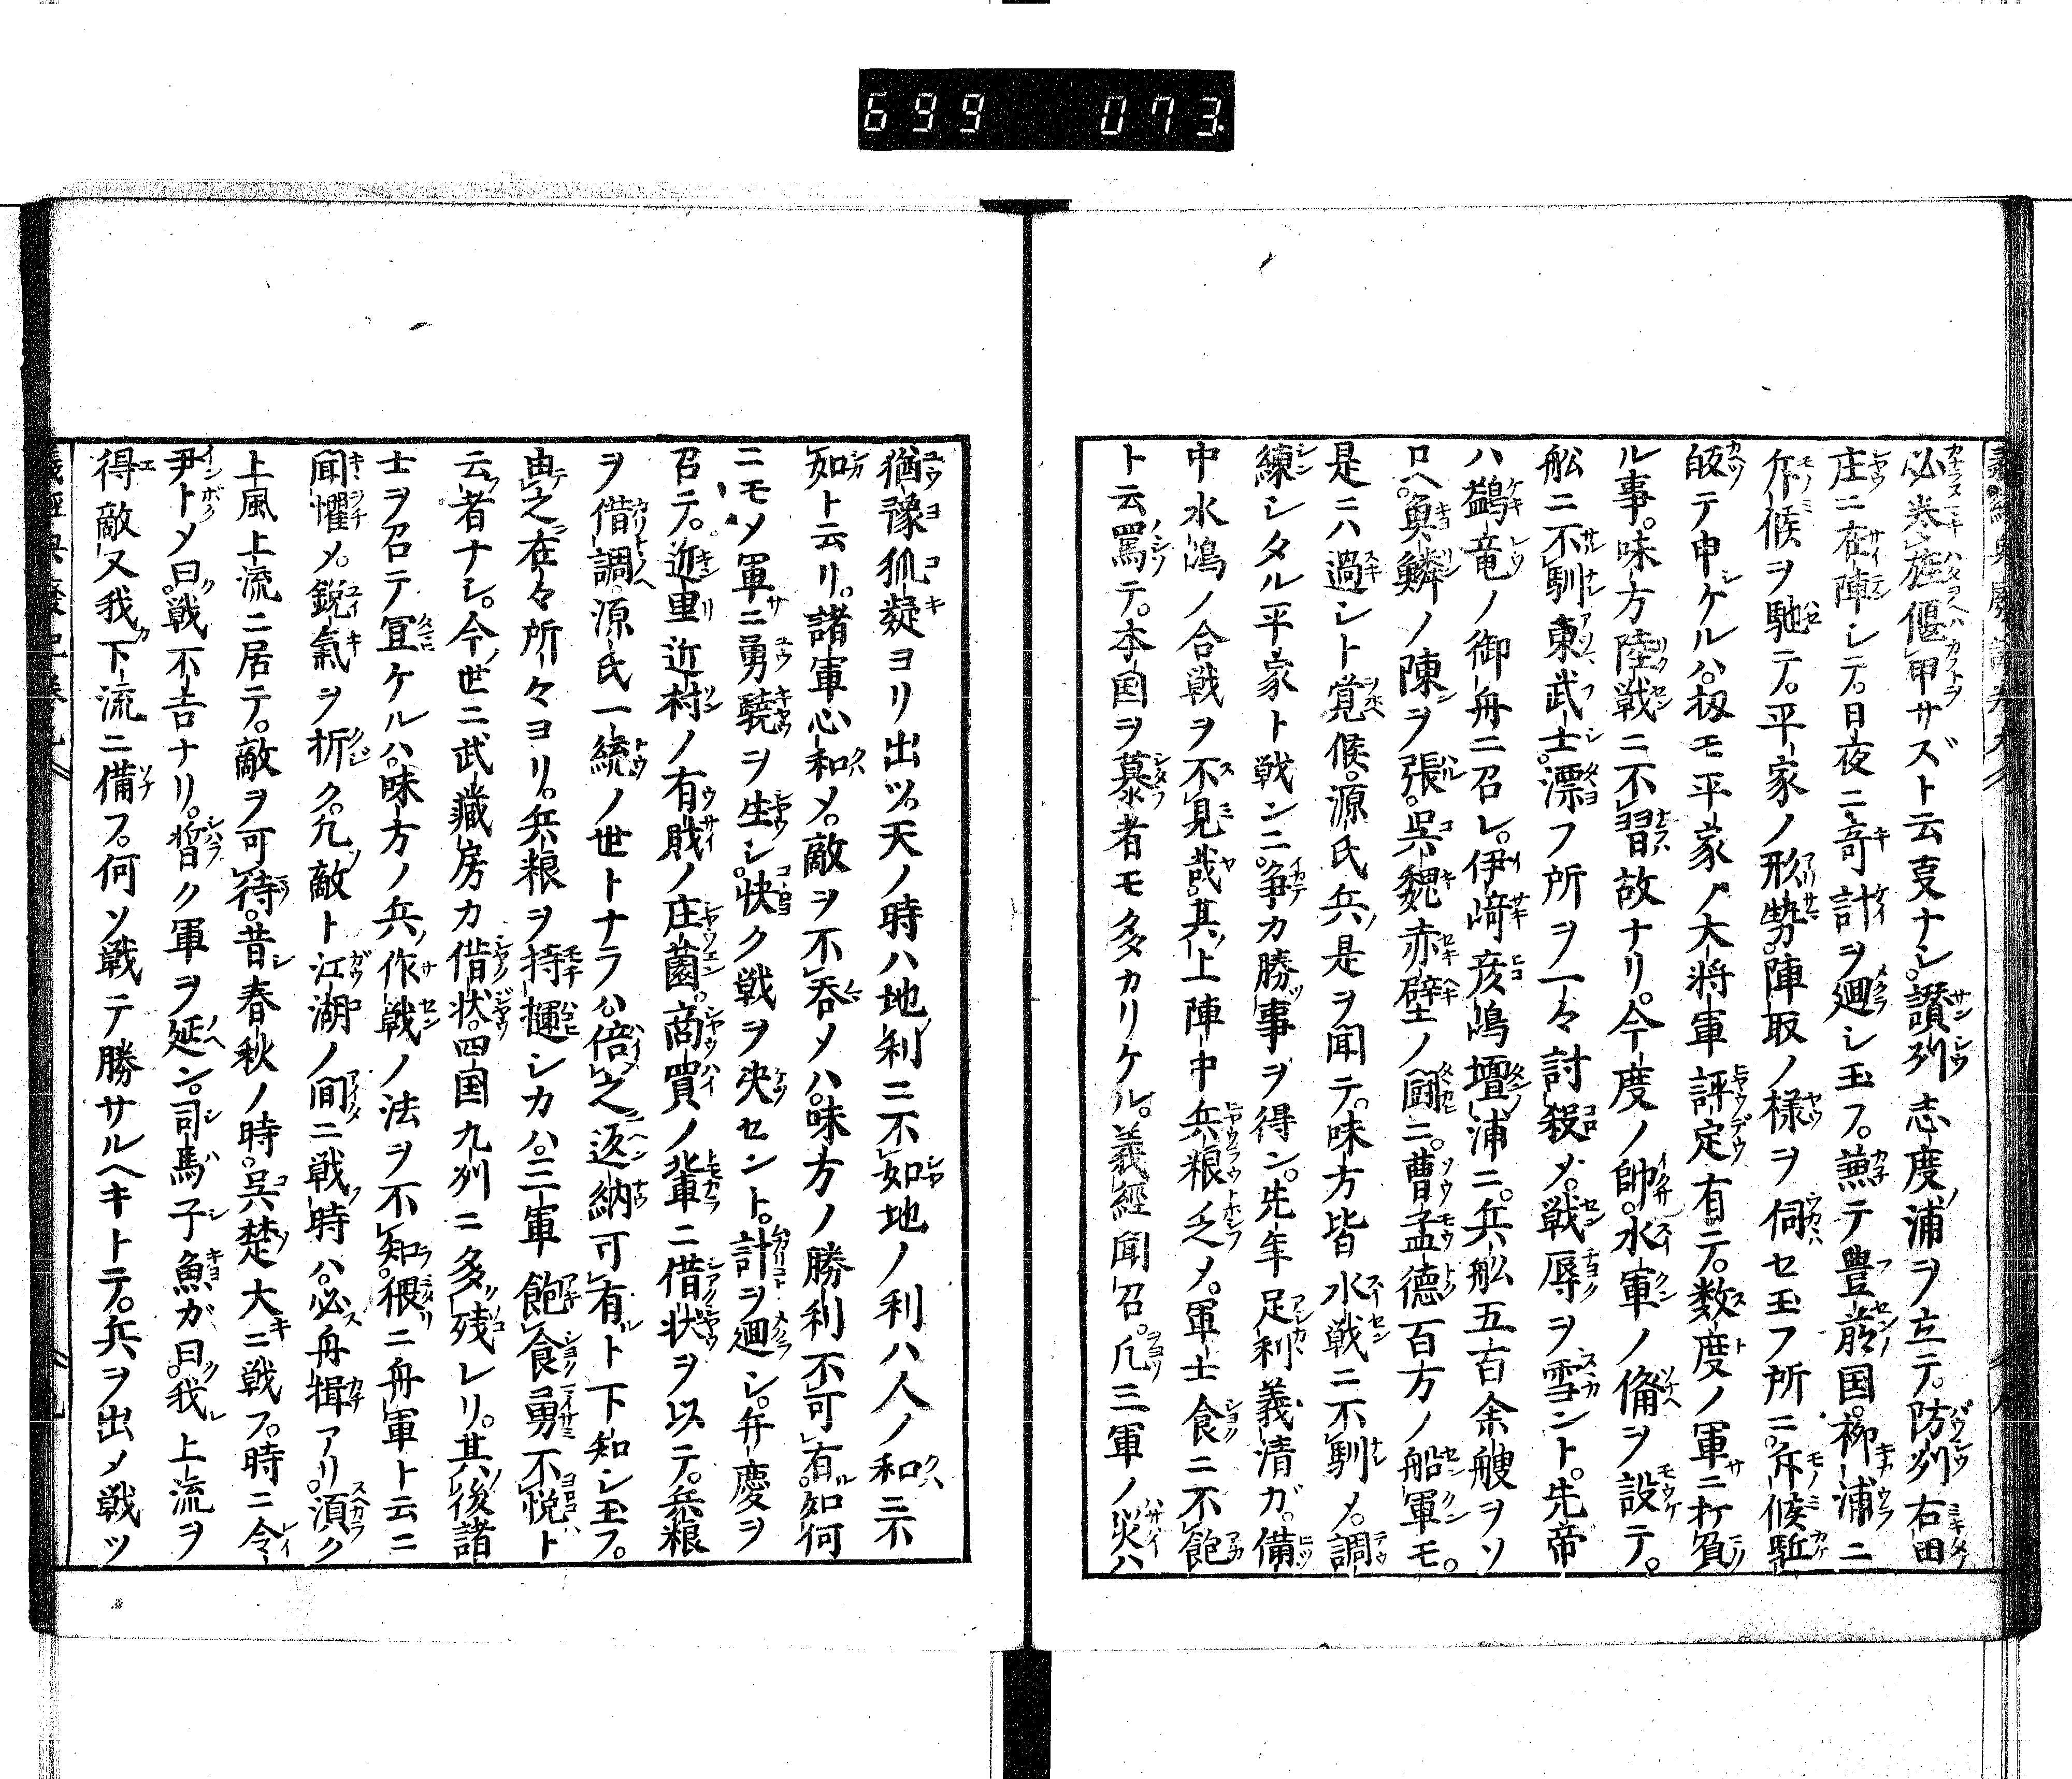 699 073
必巻旌偃甲サズト云夏ナシ。讃列志度浦ヲ立テ。防列右田
庄ニ在陣シテ。日夜ニ奇計ヲ廻シ玉フ。兼テ豊前国。柳浦ニ
斥候ヲ馳テ。平家ノ形勢。陣取ノ様ヲ伺セ玉フ所ニ。斥候駈
皈テ申ケルハ。扨モ平家ノ大将軍評定有テ。数度ノ軍ニ打負
ル事。味方陸戦ニ不習故ナリ。今度ノ帥。水軍ノ備ヲ設テ。
舩ニ不馴東武士。漂フ所ヲ一々討殺メ。戦辱ヲ雪ント。先帝
ハ鷁竜ノ御舟ニ召レ。伊﨑彦嶋壇浦ニ。兵舩五百余艘ヲソ
ロヘ。魚鱗ノ陳ヲ張。呉魏赤壁ノ闘ニ。曹孟徳百万ノ船軍モ。
是ニハ過シト覚候。源氏兵是ヲ聞テ。味方皆水戦ニ不馴メ。調
練シタル平家ト戦ンニ。争カ勝事ヲ得ン。先年足利義清ガ。備
中水嶋ノ合戦ヲ不見哉。其上陣中兵粮乏メ。軍士食ニ不飽
ト云罵テ。本国ヲ慕者モ多カリケル。義經聞召。凡三軍ノ災ハ
猶豫狐疑ヨリ出ツ。天ノ時ハ地利ニ不如地ノ利ハ人ノ和ニ不
如ト云リ。諸軍心和メ。敵ヲ不呑メハ。味方ノ勝利不可有。如何
ニモメ軍ニ勇驍ヲ生シ。快ク戦ヲ决セント。計ヲ廻シ。弁慶ヲ
召テ。近里近村ノ有賊ノ庄薗。商買ノ輩ニ借状ヲ以テ。兵粮
ヲ借調。源氏一統ノ世トナラハ。倍之返納可有ト下知シ玉フ。
由之在々所々ヨリ。兵粮ヲ持運シカハ。三軍飽食勇不悦ト
云者ナシ。今世ニ武藏房カ借状。四国九列ニ多残レリ。其後諸
士ヲ召テ宣ケルハ。味方ノ兵作戦ノ法ヲ不知。猥ニ舟軍ト云ニ
聞懼メ。鋭氣ヲ折ク。凡敵ト江湖ノ間ニ戦時ハ。必舟揖アリ。須ク
上風上流ニ居テ。敵ヲ可待。昔春秋ノ時。呉楚大ニ戦フ。時ニ令
尹トメ曰。戦不吉ナリ。暫ク軍ヲ延ン。司馬子魚ガ曰。我上流ヲ
得敵又我下流ニ備フ。何ソ戦テ勝サルヘキトテ。兵ヲ出メ戦ツ